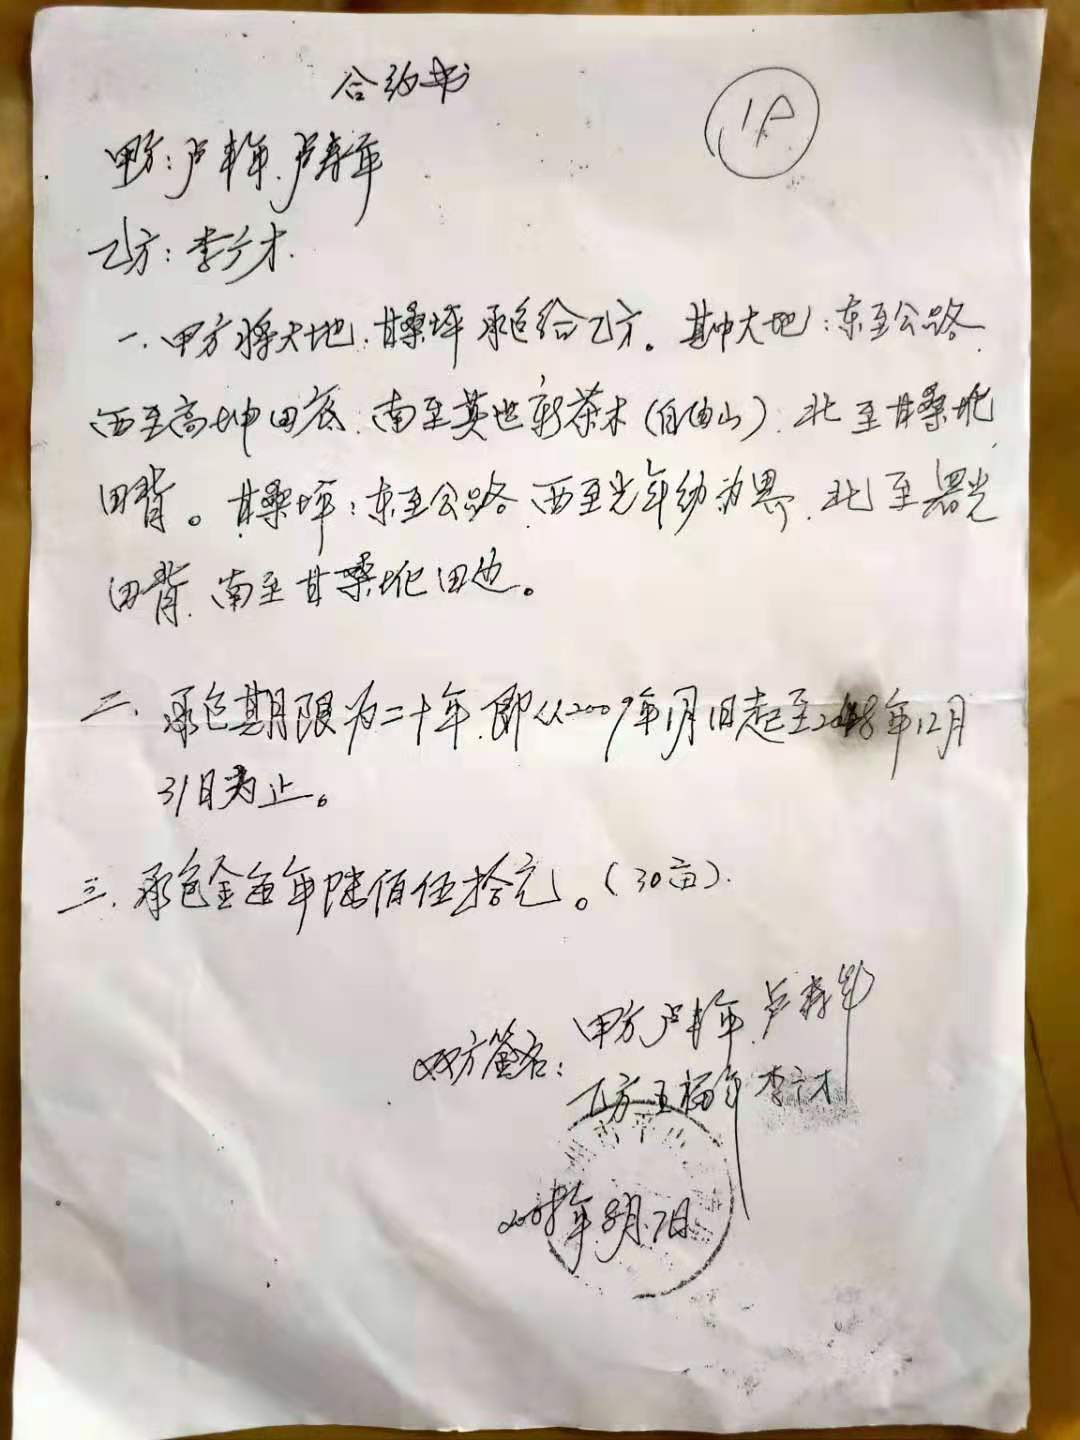 合约书
1P
甲方：卢丰年、卢寿年
乙方：李广才.
一、甲方将大地、甘桑坪承包给乙方。其中大地：东至公路
西至高坤田底、南至英也新茶木(自由山)、北至甘桑圯
田背。甘桑坪：东至公路、西至光年幼为界、北至器光
田背、南至甘桑圯田边。
二、承包期限为二十年、即从2009年1月1日起至20 8年12月
31日为止。
三、承包金每年陆佰伍拾元。(30亩).
双方签名：甲方卢丰年、卢寿年
乙方王福年 李广才
2008年8月7日